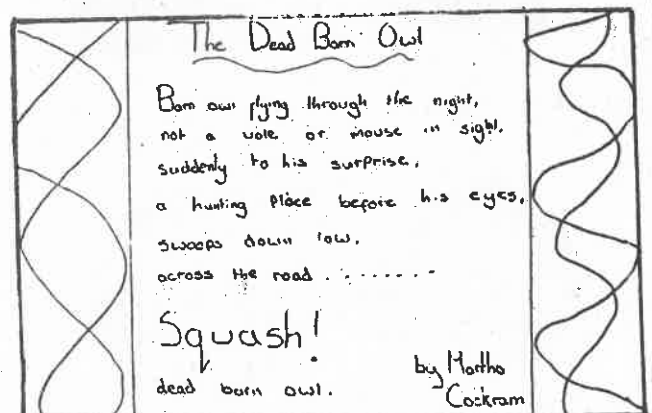 The Dead Barn Owl
Barn owl flying through the night,
not a vole or mouse in sight,
suddenly to his surprise,
a hunting place before his eyes,
swoops down low,
across the road ........
Squash!
dead barn owl.
by Martha
Cockram